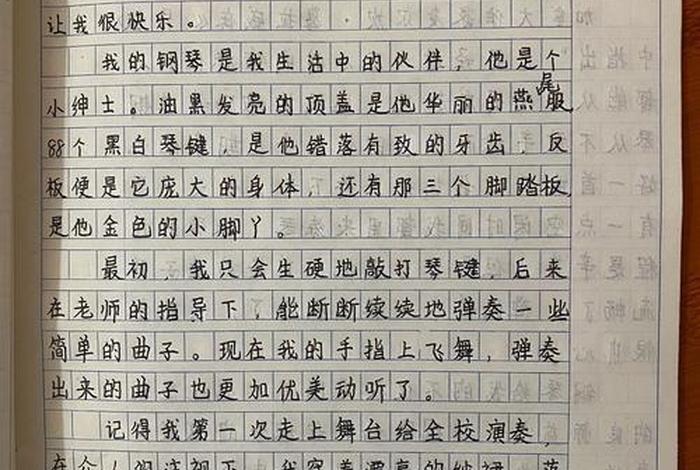 让我很快乐。
我的钢琴是我生活中的伙伴，他是个
小绅士。油黑发亮的顶盖是他华丽的燕尾服
88个黑白琴键，是他错落有致的牙齿，反
板便是它庞大的身体，还有那三个脚踏板，
是他金色的小脚丫。
最初，我只会生硬地敲打琴键，后来
在老师的指导下，能断断续续地弹奏一些
简单的曲子。现在我的手指上飞舞，弹奏
出来的曲子也更加优美动听了。
记得我第一次走上舞台给全校演奏，